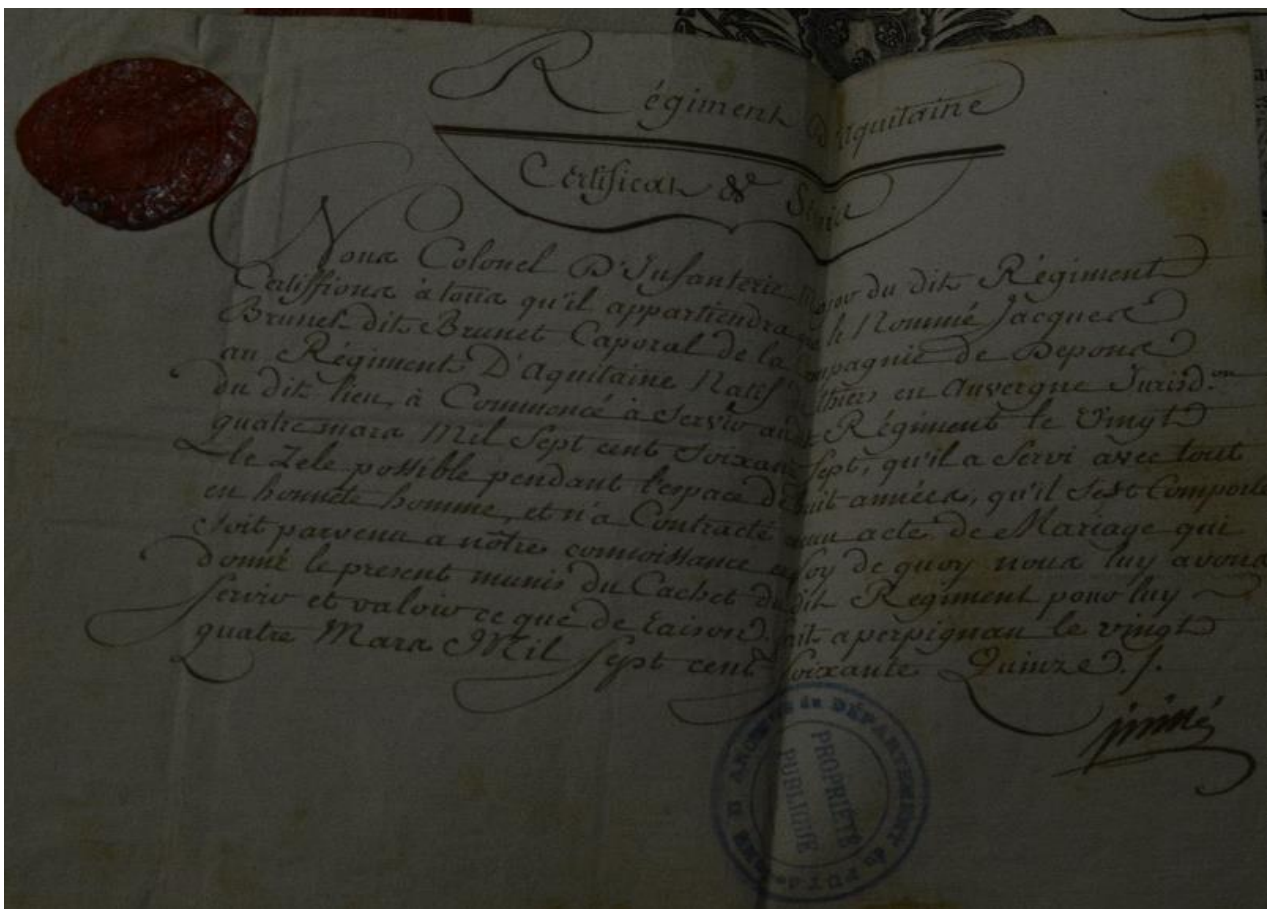 Régiment D'Aquitaine
Certificat de Service
Nous Colonel D'Infanterie Major du dit Régiment
Certiffions à tous qu'il appartiendra que le Nommé Jacques
Brunet dit Brunet Caporal de la Compagnie de Depons
au Régiment D'Aquitaine Natif thiers en Auvergne Jurisd.on
du dit lieu, à Commencé à Servir audit Régiment le Vingt
quatre mars Mil Sept cent Soixante Sept, qu'il a Servi avec tout
le Zele possible pendant l'espace de huit années, qu'il s'est Comporté
en honnete homme, et n'a Contracté aucun acte de Mariage qui
soit parvenu a nôtre connoissance en foy de quoy nous luy avons
donné le present munis du Cachet dudit Regiment pour luy
servir et valoir ce que de raison. fait a perpignan le vingt
quatre Mars Mil Sept cent Soixante Quinze ./.
ARCHIVES du DÉPARTEMENT du PUY-de-DÔME
PROPRIÉTÉ
PUBLIQUE